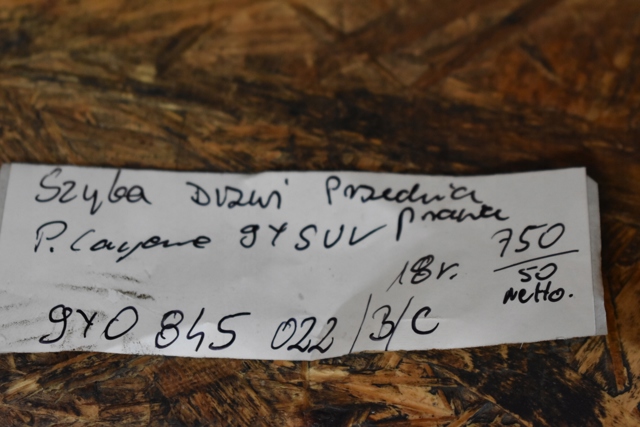 Szyba Drzwi Przednia
prawa
P. Cayenne 9Y SUV
18r.
750
50
netto.
9Y0 845 022/B/C